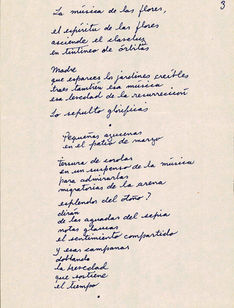 3
La música de las flores,
el espíritu de las flores
asciende el claustro
en tintineo de órbitas
Madre
que esparces los jardines creíbles
traes también esa música
esa levedad de la resurrección
Lo sepulto glorificas
Pequeñas azucenas
en el patio de marzo
tersura de corolas
en un suspenso de la música
para admirarlas
migratorias de la arena
esplendor del otoño?
dirán
de las aguadas del sepia
notas glaucas
el sentimiento compartido
y esas campanas
doblando
la levedad
que sostiene
el tiempo